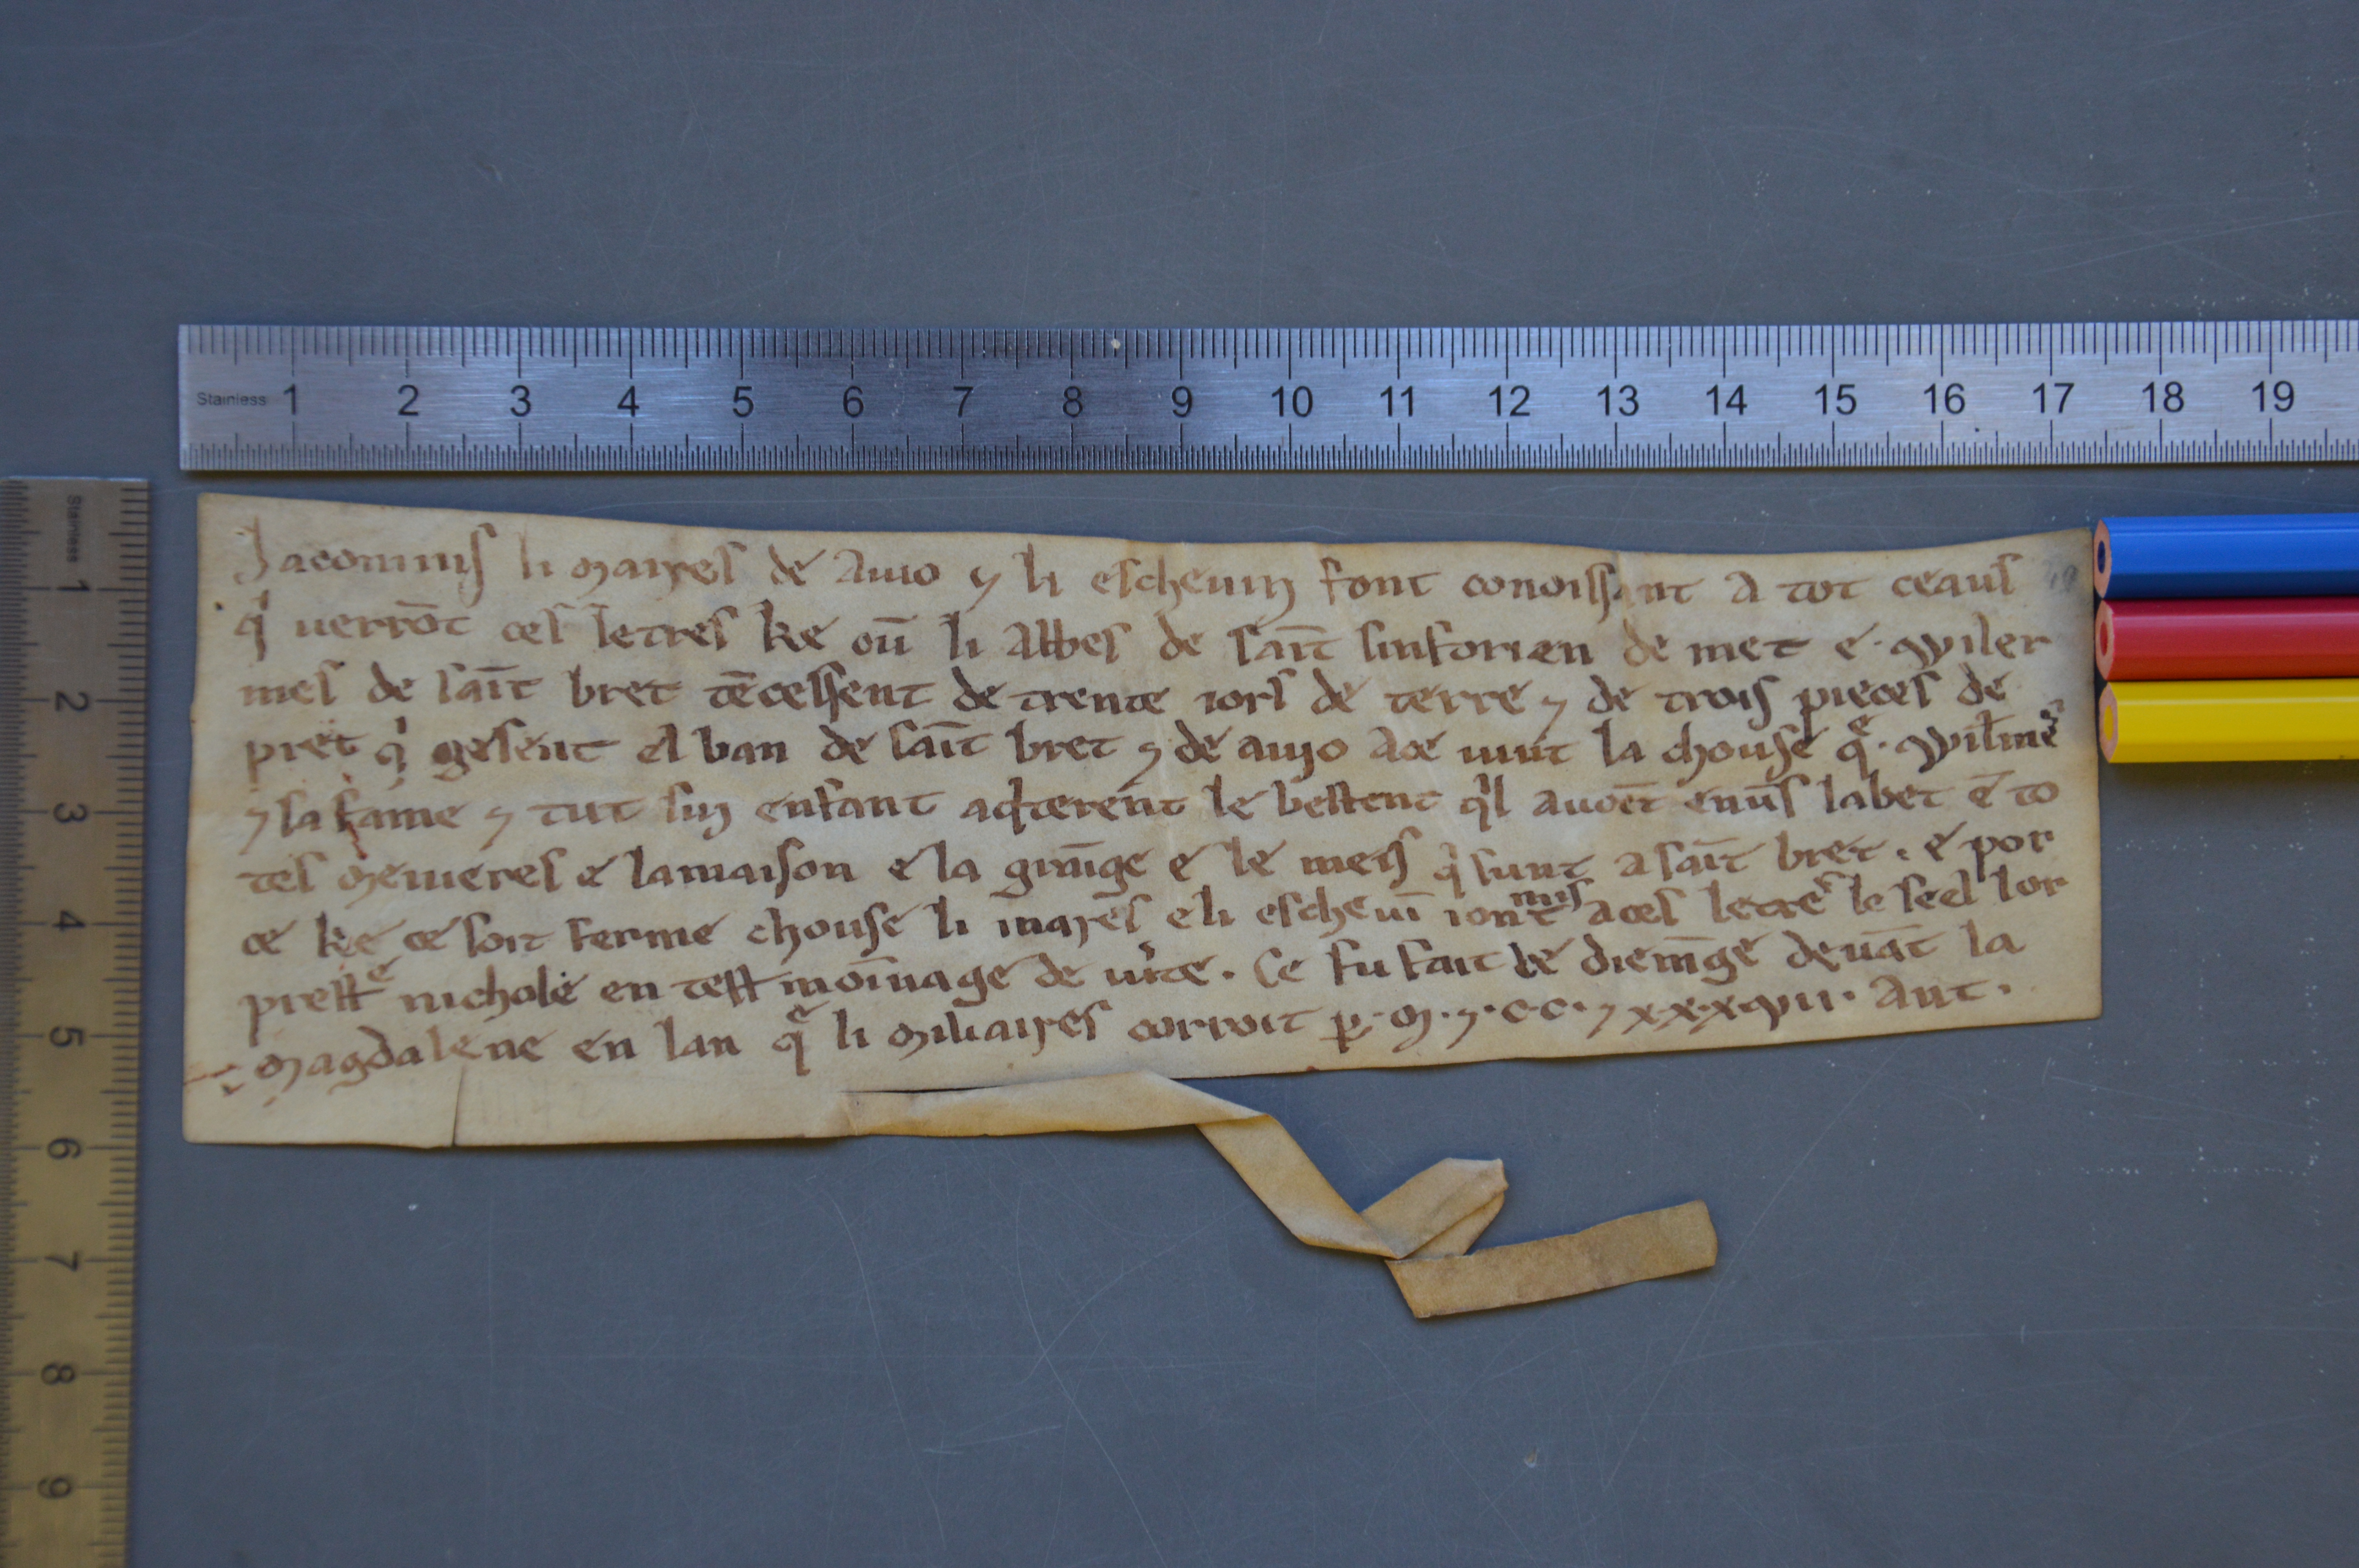 Stainless 1 2 3 4 5 6 7 8 9 10 11 12 13 14 15 16 17 18 19
Stainless 1 2 3 4 5 6 7 8 9
Jacominſ li mayreſ de auio ⁊ li eſchevin font conoiſſant a tot ceauſ
qͥ verrōt ceſ letreſ ke oū li abbeſ de ſaīt ſinforien de met e· Wiler
meſ de ſaīt bret tēceſſent de trente iorſ de terre ⁊ de troiſ pieceſ de
pret qͥ geſent el ban de ſaīt bret ⁊ de auyo a ce vint la chouſe qͤ· Wilꝉmeˢ
⁊ ſa fame ⁊ tut ſin enfant aqͥterent le beſtent qͥl avoēt envſ̄ labet ē to
teſ meniereſ e la maiſon e la grāige e le meiſ qͥ ſunt a ſaīt bret · e por
ce ke ce ſoit ferme chouſe li mayreſ e li eſchevī i ont miſ a ceſ letreˢ le ſeel lor
preſtͤ nichole en teſtmoīnage de vͥte · Ce fu fait le diemāge devāt la
magdalene en lan qͤ li miliayreſ corroit p̲ · m · ⁊ · c · c · ⁊ xxxvii · Ant ·